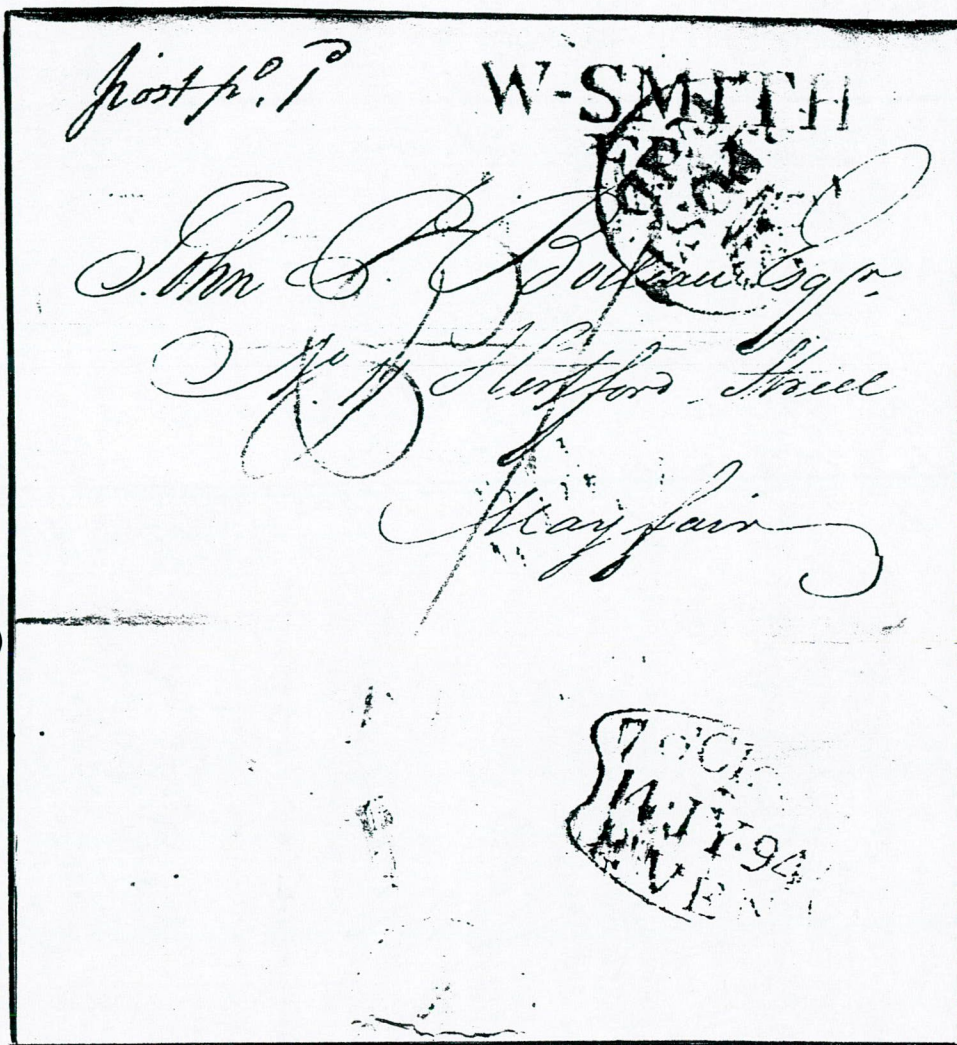 post pd. 1d
W-SMITH
John P. Boileau Esqr.
No. Hertford Street
Mayfair
7 OCLO
14·JY·94
EVEN